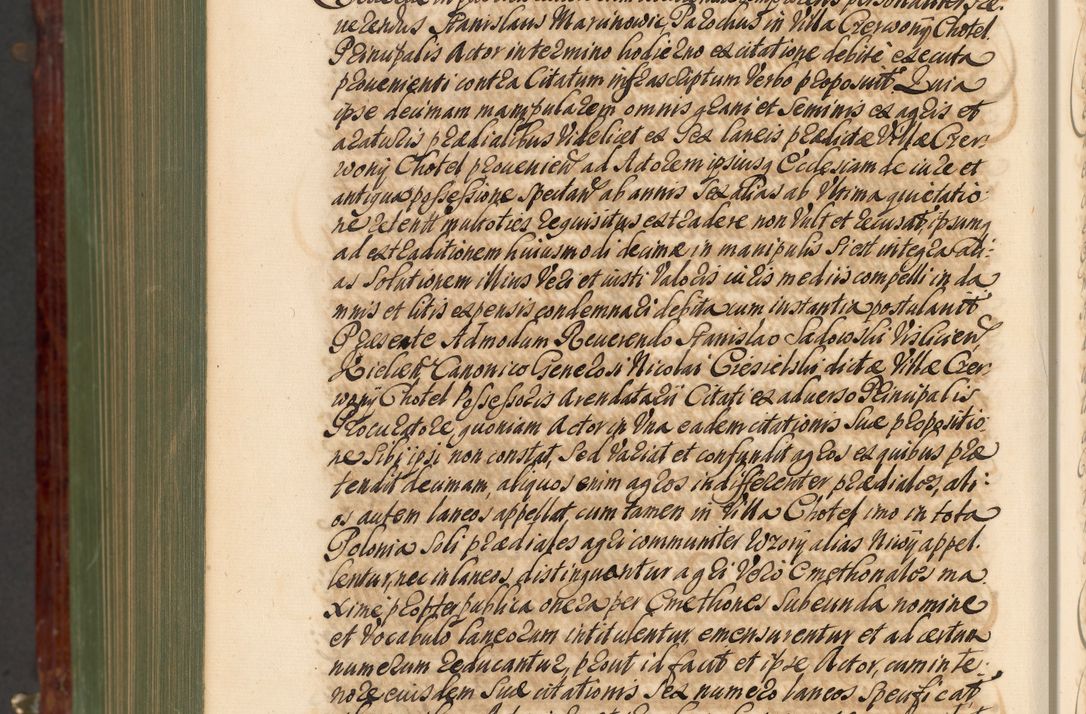 nerendus Stanislaus Marunowic Parochus in Villa Czerwony Chotel
Principalis Actor in termino hodierno ex citatione debite executa
proveniente contra Citatum infrascriptum Verbo proposuit Quia
ipse decimam manipularem omnis grani et Seminis ex agris et
araturis praedialibus Videlicet ex Sex laneis praedictae Villae Czer
wony Chotel provenien ad Actorem ipsiusq Ecclesiam de iure et
antiqua possessione Spectan ab annis Sex alias ab Vltima quietatio
ne retenta multoties requisitus extradere non Vult et recusat, ipsumq
ad extraditionem huiusmodi decimae in manipulis Si est integra ali:
as Solutionem illius Veri et iusti Valoris iuris mediis compelli in da
mnis et litis expensis condemnari debita cum instantia postulavit
Praesente Admodum Reverendo Stanislao Sadowski Vislicien
Kielcen Canonico Generosi Nicolai Ciesielski dictae Villae Czer
wony Chotel Possessoris Arendatarii Citati ex adverso Principalis
Procuratore, quoniam Actor in Vna eadem citationis Suae propositio
ne Sibi ipsi non constat, Sed Variat et confundit agros ex quibus prae
tendit decimam, aliquos enim agros indifferenter praediales, ali:
os autem laneos appellat, cum tamen in Villa Chotel imo in tota
Polonia Soli praediales agri communiter Wzory alias Niwy appel.
lentur, nec in laneos distinguantur agri Vero Cmethonales ma
xime propter publica onera per Cmethones Subeunda nomine
et Vocabulo laneorum intitulentur emensurentur et ad certum
numerum reducantur, prout id facit et ipse Actor, cum in te:
nore eiusdem Suae citationis Sex numero laneos Specificat